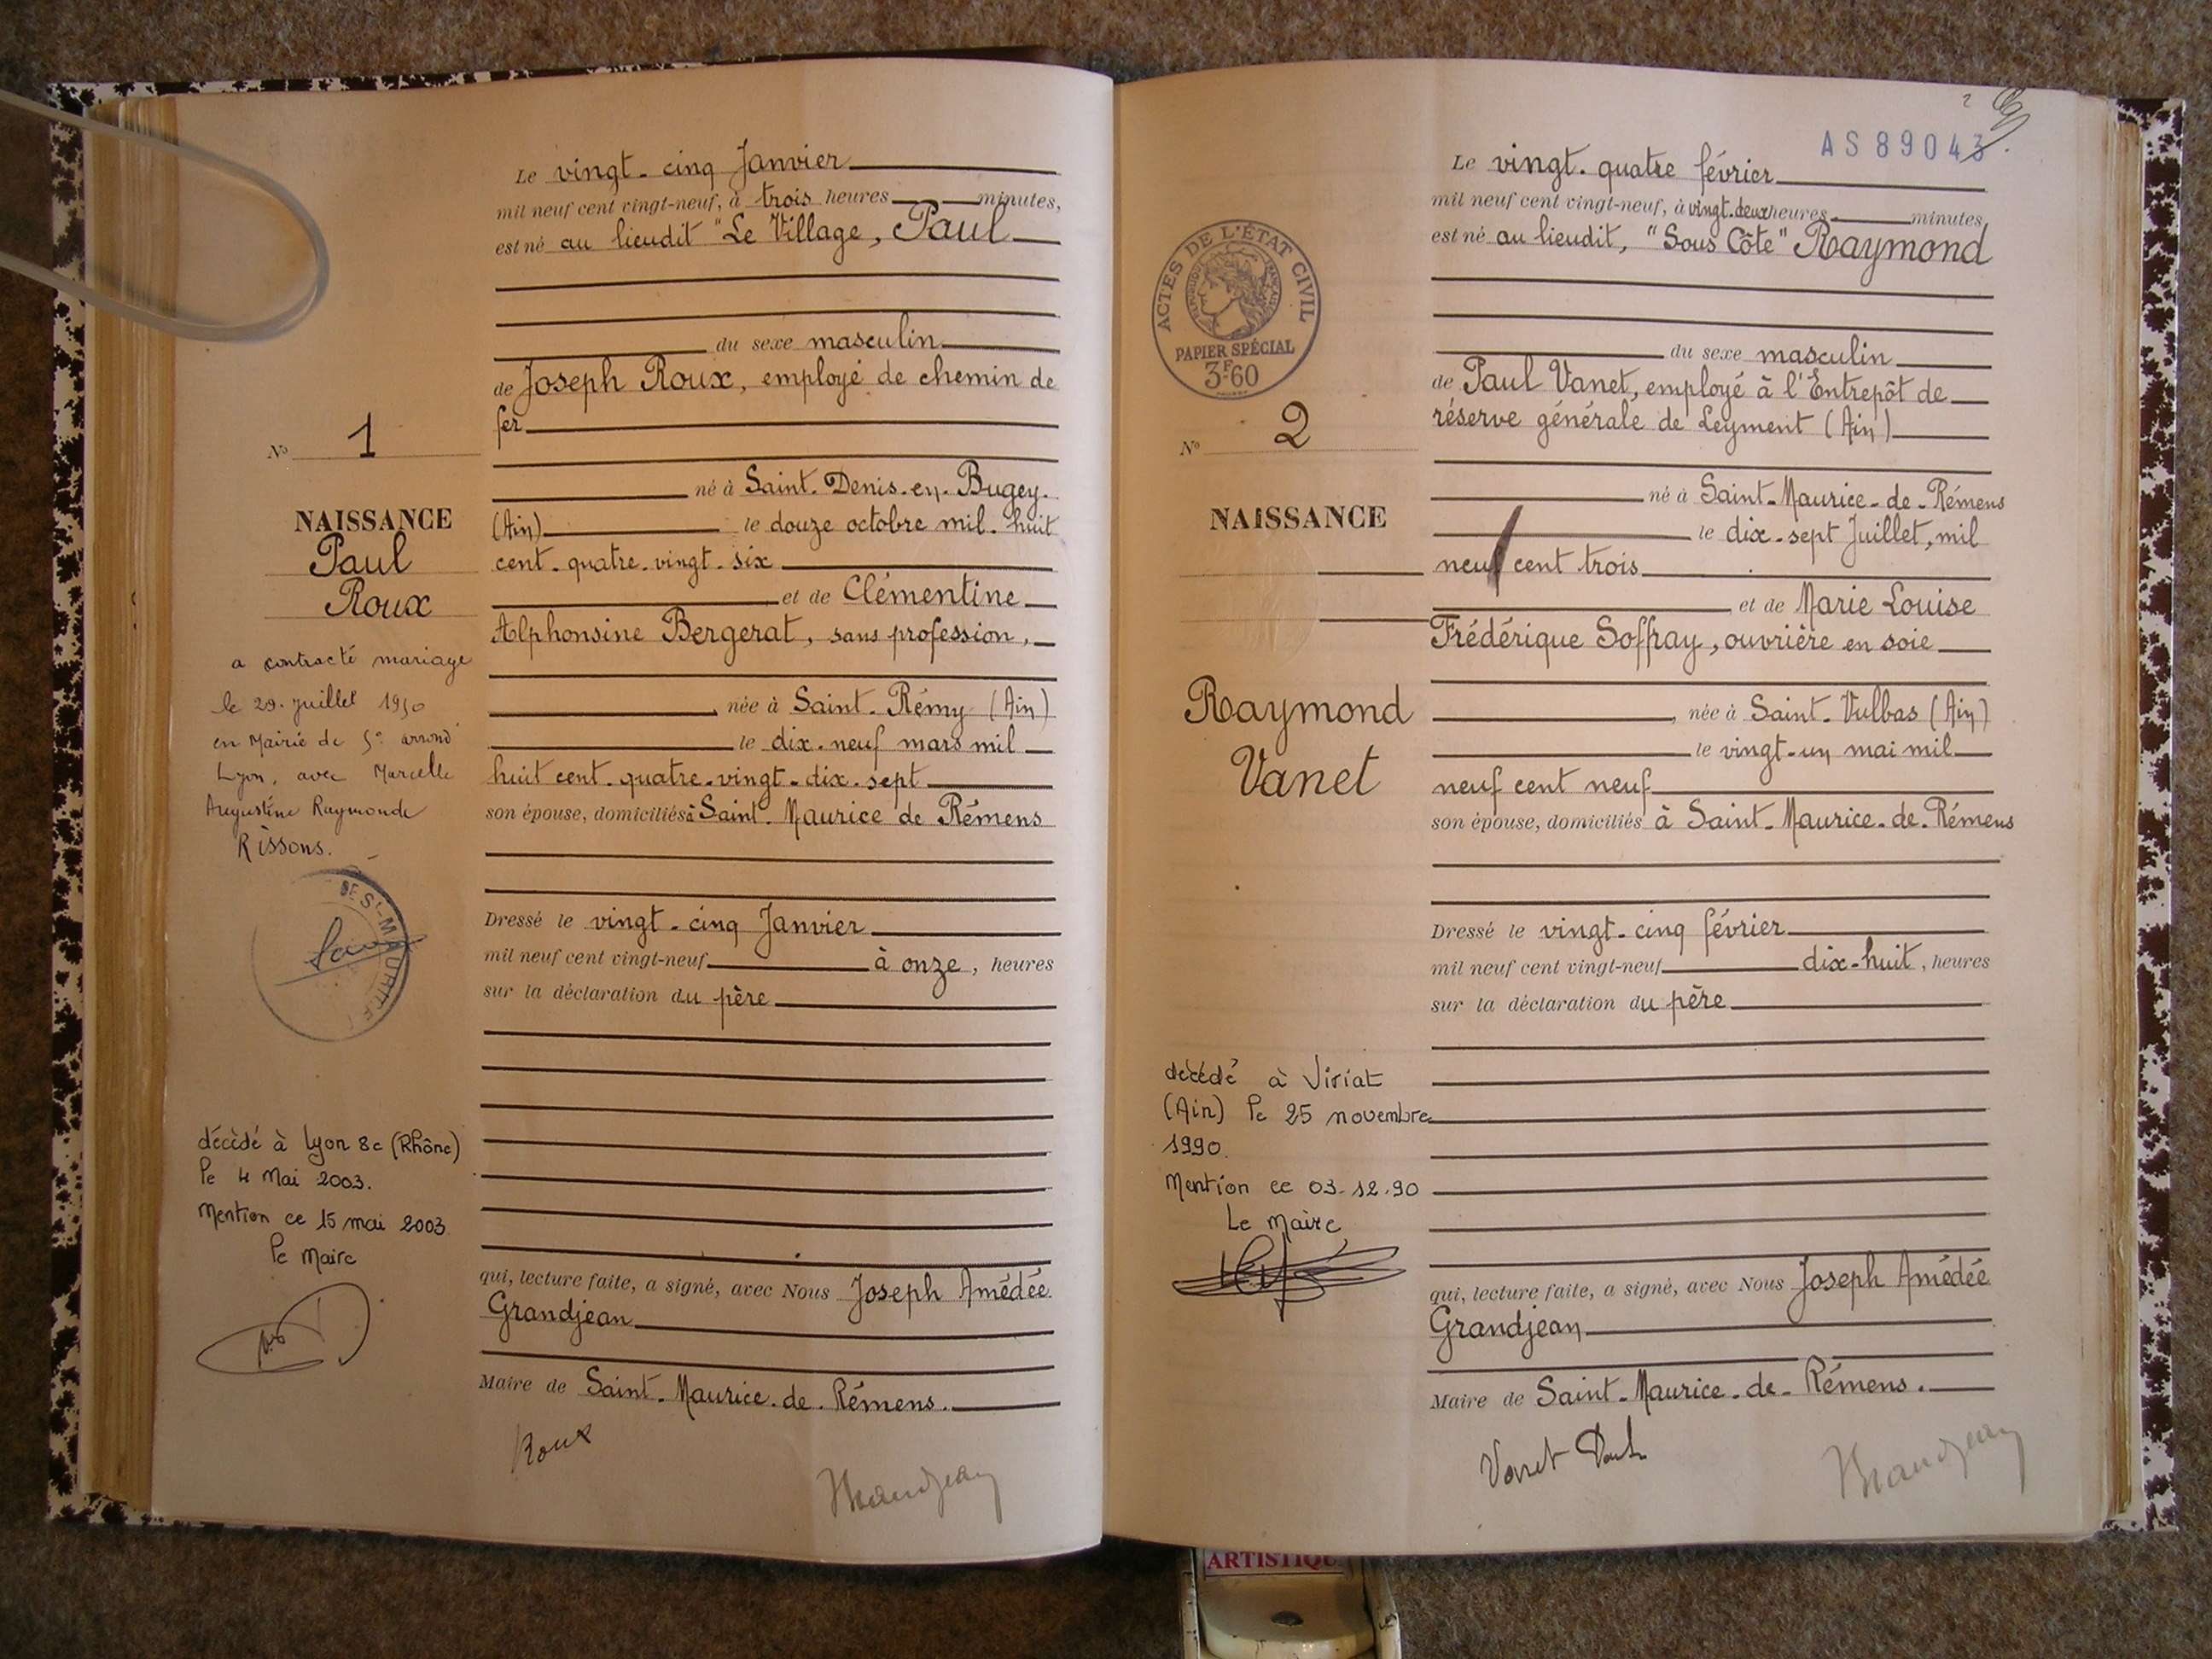 Le vingt-cinq Janvier
mil neuf cent vingt-neuf, à trois heures minutes,
est né au lieudit "Le Village, Paul
du sexe masculin
de Joseph Roux, employé de chemin de
fer
né à Saint-Denis-en-Bugey
(Ain) le douze octobre mil-huit
cent-quatre-vingt-six
et de Clémentine
Alphonsine Bergerat, sans profession,
née à Saint-Rémy (Ain)
le dix-neuf mars mil
huit cent-quatre-vingt-dix-sept
son épouse, domiciliés à Saint-Maurice de Rémens
Dressé le vingt-cinq Janvier
mil neuf cent vingt-neuf à onze, heures
sur la déclaration du père
qui, lecture faite, a signé, avec Nous Joseph Amédée
Grandjean
Maire de Saint-Maurice-de-Rémens.
Roux
Grandjean
No 1
NAISSANCE
Paul
Roux
a contracté mariage
le 29 juillet 1950
en Mairie de 5e arrond
Lyon, avec Marcelle
Augustine Raymonde
Rissons.
DE St-MAURICE
décédé à Lyon 8e (Rhône)
le 4 Mai 2003.
Mention ce 15 mai 2003
le Maire
2
AS 89043
Le vingt-quatre février
mil neuf cent vingt-neuf, à vingt-deux heures minutes,
est né au lieudit, "Sous Côte" Raymond
du sexe masculin
de Paul Vanet, employé à l'Entrepôt de
réserve générale de Leyment (Ain)
né à Saint-Maurice-de-Rémens
le dix-sept Juillet, mil
neuf cent trois
et de Marie Louise
Frédérique Soffray, ouvrière en soie
, née à Saint-Vulbas (Ain)
le vingt-un mai mil
neuf cent neuf
son épouse, domiciliés à Saint-Maurice-de-Rémens
Dressé le vingt-cinq février
mil neuf cent vingt-neuf dix-huit, heures
sur la déclaration du père
qui, lecture faite, a signé, avec Nous Joseph Amédée
Grandjean
Maire de Saint-Maurice-de-Rémens.
Vanet Paul
Grandjean
ACTES DE L'ÉTAT CIVIL
RÉPUBLIQUE FRANÇAISE
PAPIER SPÉCIAL
3F60
No 2
NAISSANCE
Raymond
Vanet
décédé à Viriat
(Ain) le 25 novembre
1990.
Mention ce 03-12-90
Le Maire
ARTISTIQU